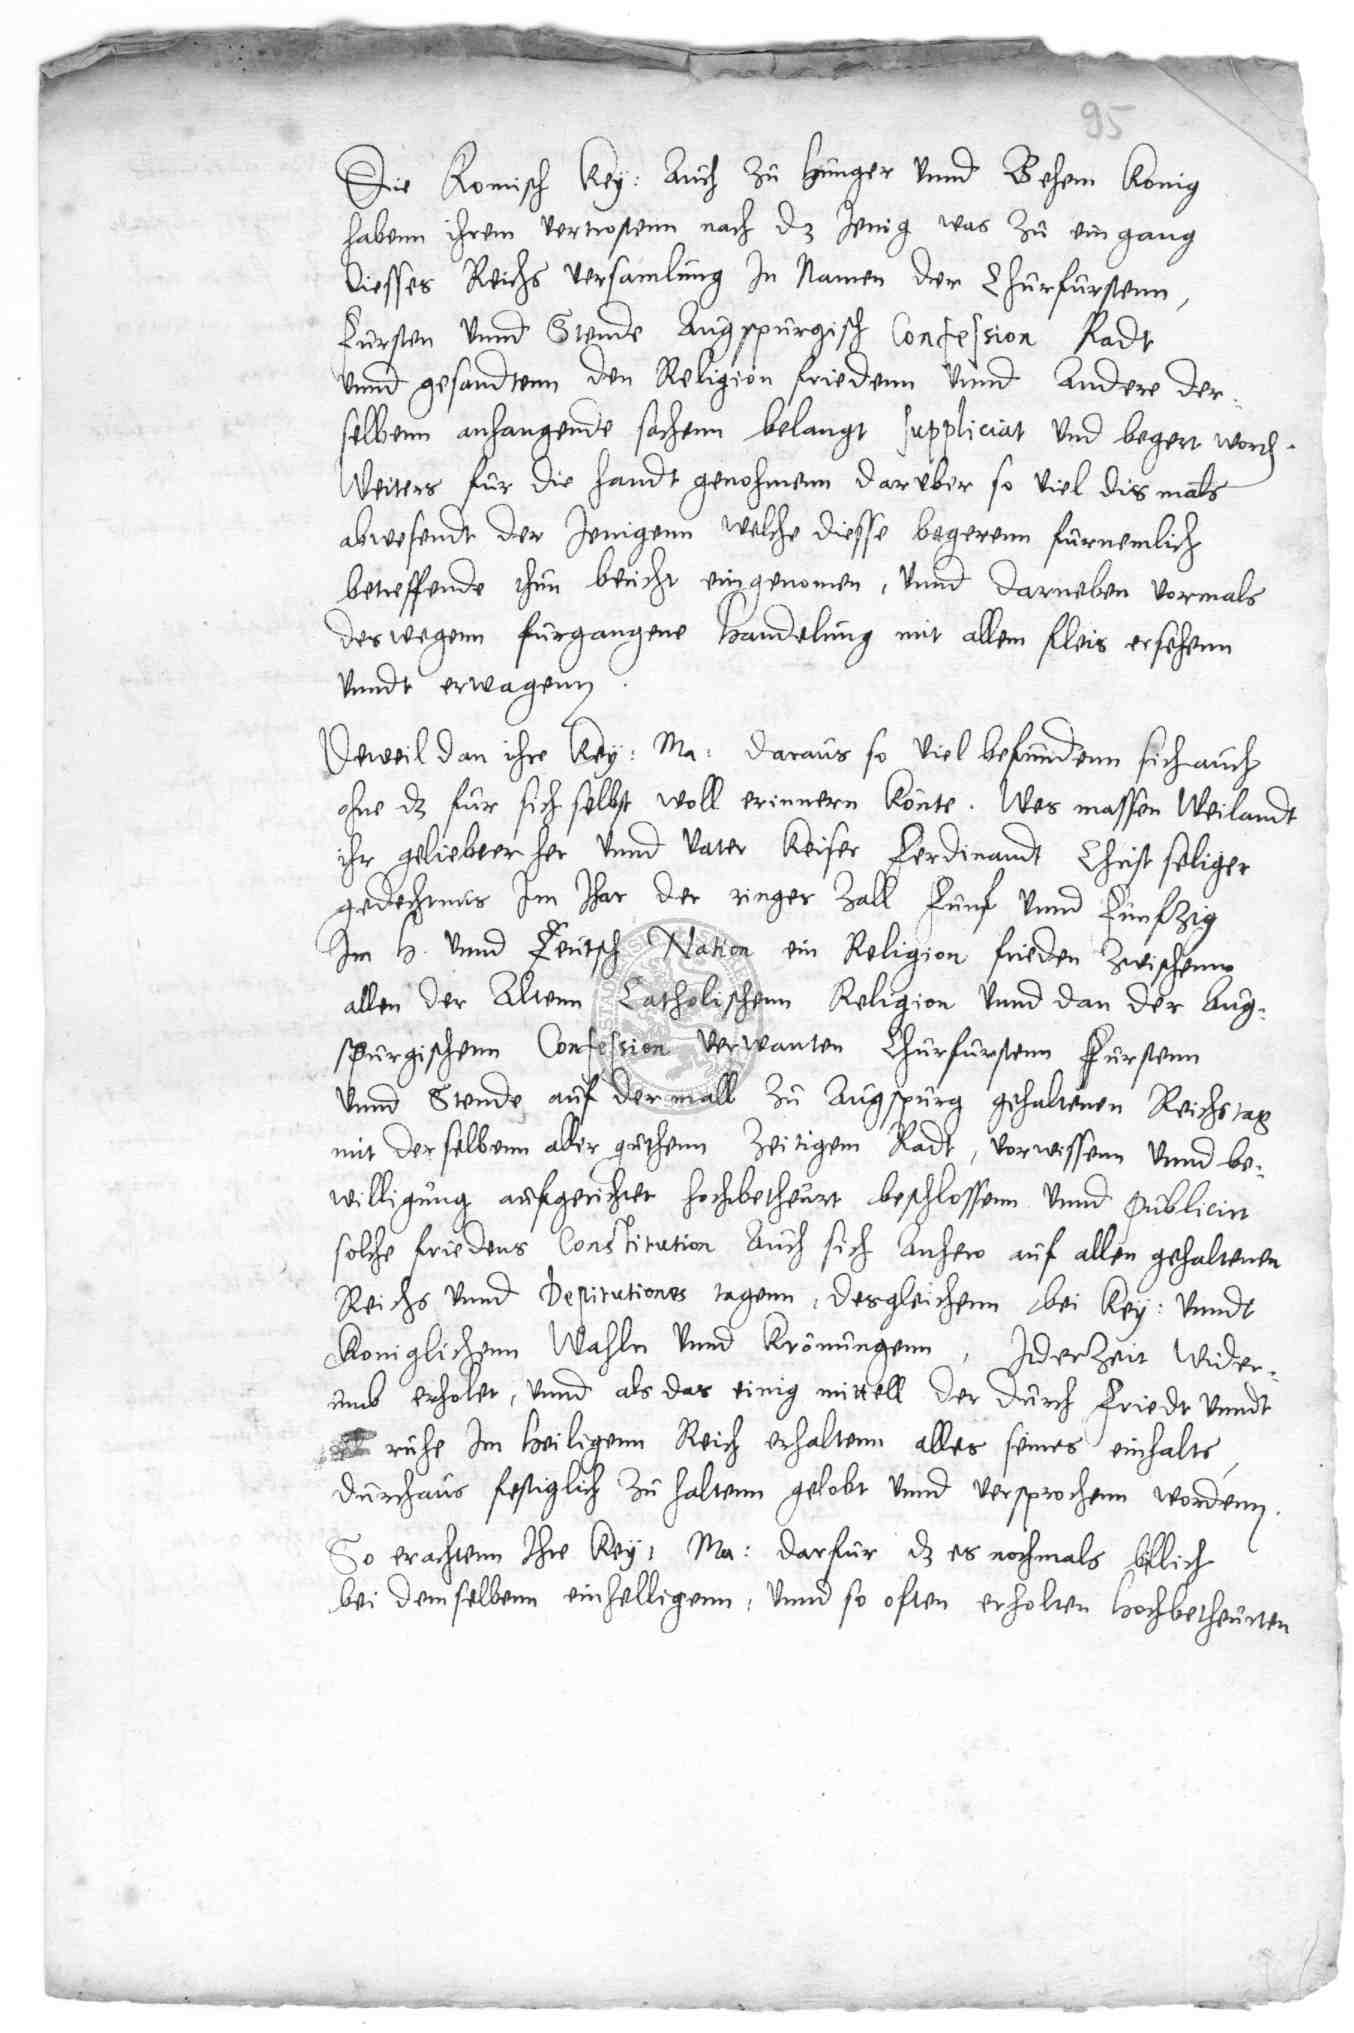 95
Die Romisch Key: Auch zu Hunger vnnd Behem Konig
habenn ihrem vertrostenn nach dz Jenig was zu eingang
diesses Reichs versamlung In Namen der Churfurstenn,
Fursten vnnd Stende Augspurgisch Confession Radt
vnnd gesandtenn den Religion friedenn vnnd Andere der:
selbenn anhangende sachenn belangt suppliciat vnd begert word.
Weiters fur die handt genohmenn daruber so viel dismals
abwesendt der Jenigenn welche diesse begerenn furnemlich
betreffende ihnn bericht eingenomen, vnnd darneben vormals
deswegenn furgangene Handelung mit allem fleis ersehenn
vnndt erwagenn.
Deweil dan ihre Key: Ma: daraus so viel befundenn sich auch
ohne dz fur sich selbst woll erinnern konte. Wes massen Weilandt
ihr geliebter her vnnd vater Keiser Ferdinandt Christ seliger
gedechtnus Im Jhar der ringer Zall Funf vnnd Funfzig
Im H. vnnd Teutsch Nation ein Religion frieden zwischenn
allen der Altenn Catholischenn Religion vnnd dan der Aug:
spurgischenn Confession verwanten Churfurstenn Furstenn
vnnd Stende auf der mall zu Augspurg gehaltenen Reichstag
mit derselbenn aller guthenn zeitigem Radt, vorwissenn vnnd be:
willigung aufgerichtet hochbetheurt beschlossenn vnnd Publicirt
solche friedens Constitution Auch sich Anhero auf allen gehaltenen
Reichs vnnd Deputationes tagenn, desgleichenn bei Key: vnndt
Koniglichenn Wahln vnnd Kronungenn, Jderzeit wider:
umb erholet, vnnd als das einig mittell der durch Friedt vnndt
ruhe Im Heiligenn Reich erhaltenn alles seines einhalts,
durchaus festiglich zu haltenn gelobt vnnd versprochenn wordenn.
So erachtenn Ihre Key: Ma: darfur dz es nochmals billich
bei demselbenn einhelligenn, vnnd so often erholten Hochbetheurten